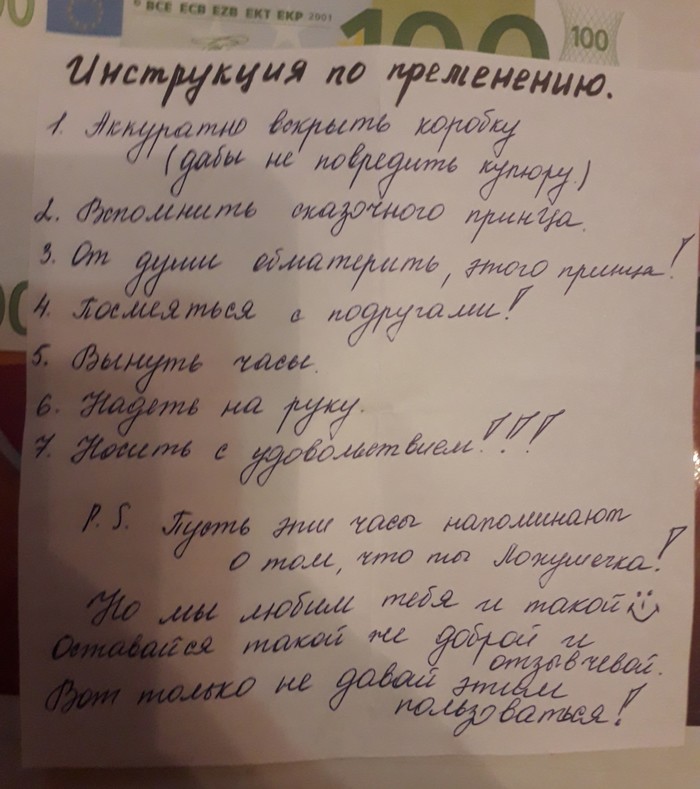 © BCE ECB EZB EKT EKP 2001
100
100
Инструкция по пременению.
1. Аккуратно вскрыть коробку
(дабы не повредить купюру.)
2. Вспомнить сказочного принца.
3. От души обматерить, этого принца!
4. Посмеяться с подругами!
5. Вынуть часы.
6. Надеть на руку.
7. Носить с удовольствием!!!
P.S. Пусть эти часы напоминают
о том, что ты Лохушечка!
Но мы любим тебя и такой
Оставайся такой же доброй и
отзывчевой.
Вот только не давай этим
пользоваться!